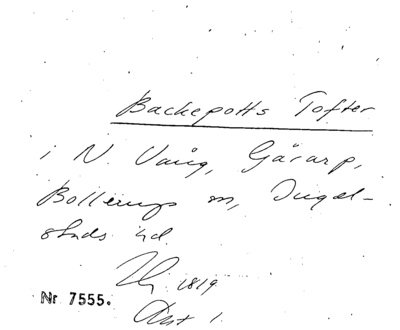 Backepotts Tofter
i N. Vång, Gårarp,
Bollerups sn, Ingel-
stads hd.
1819
Nr 7555. Akt 1.